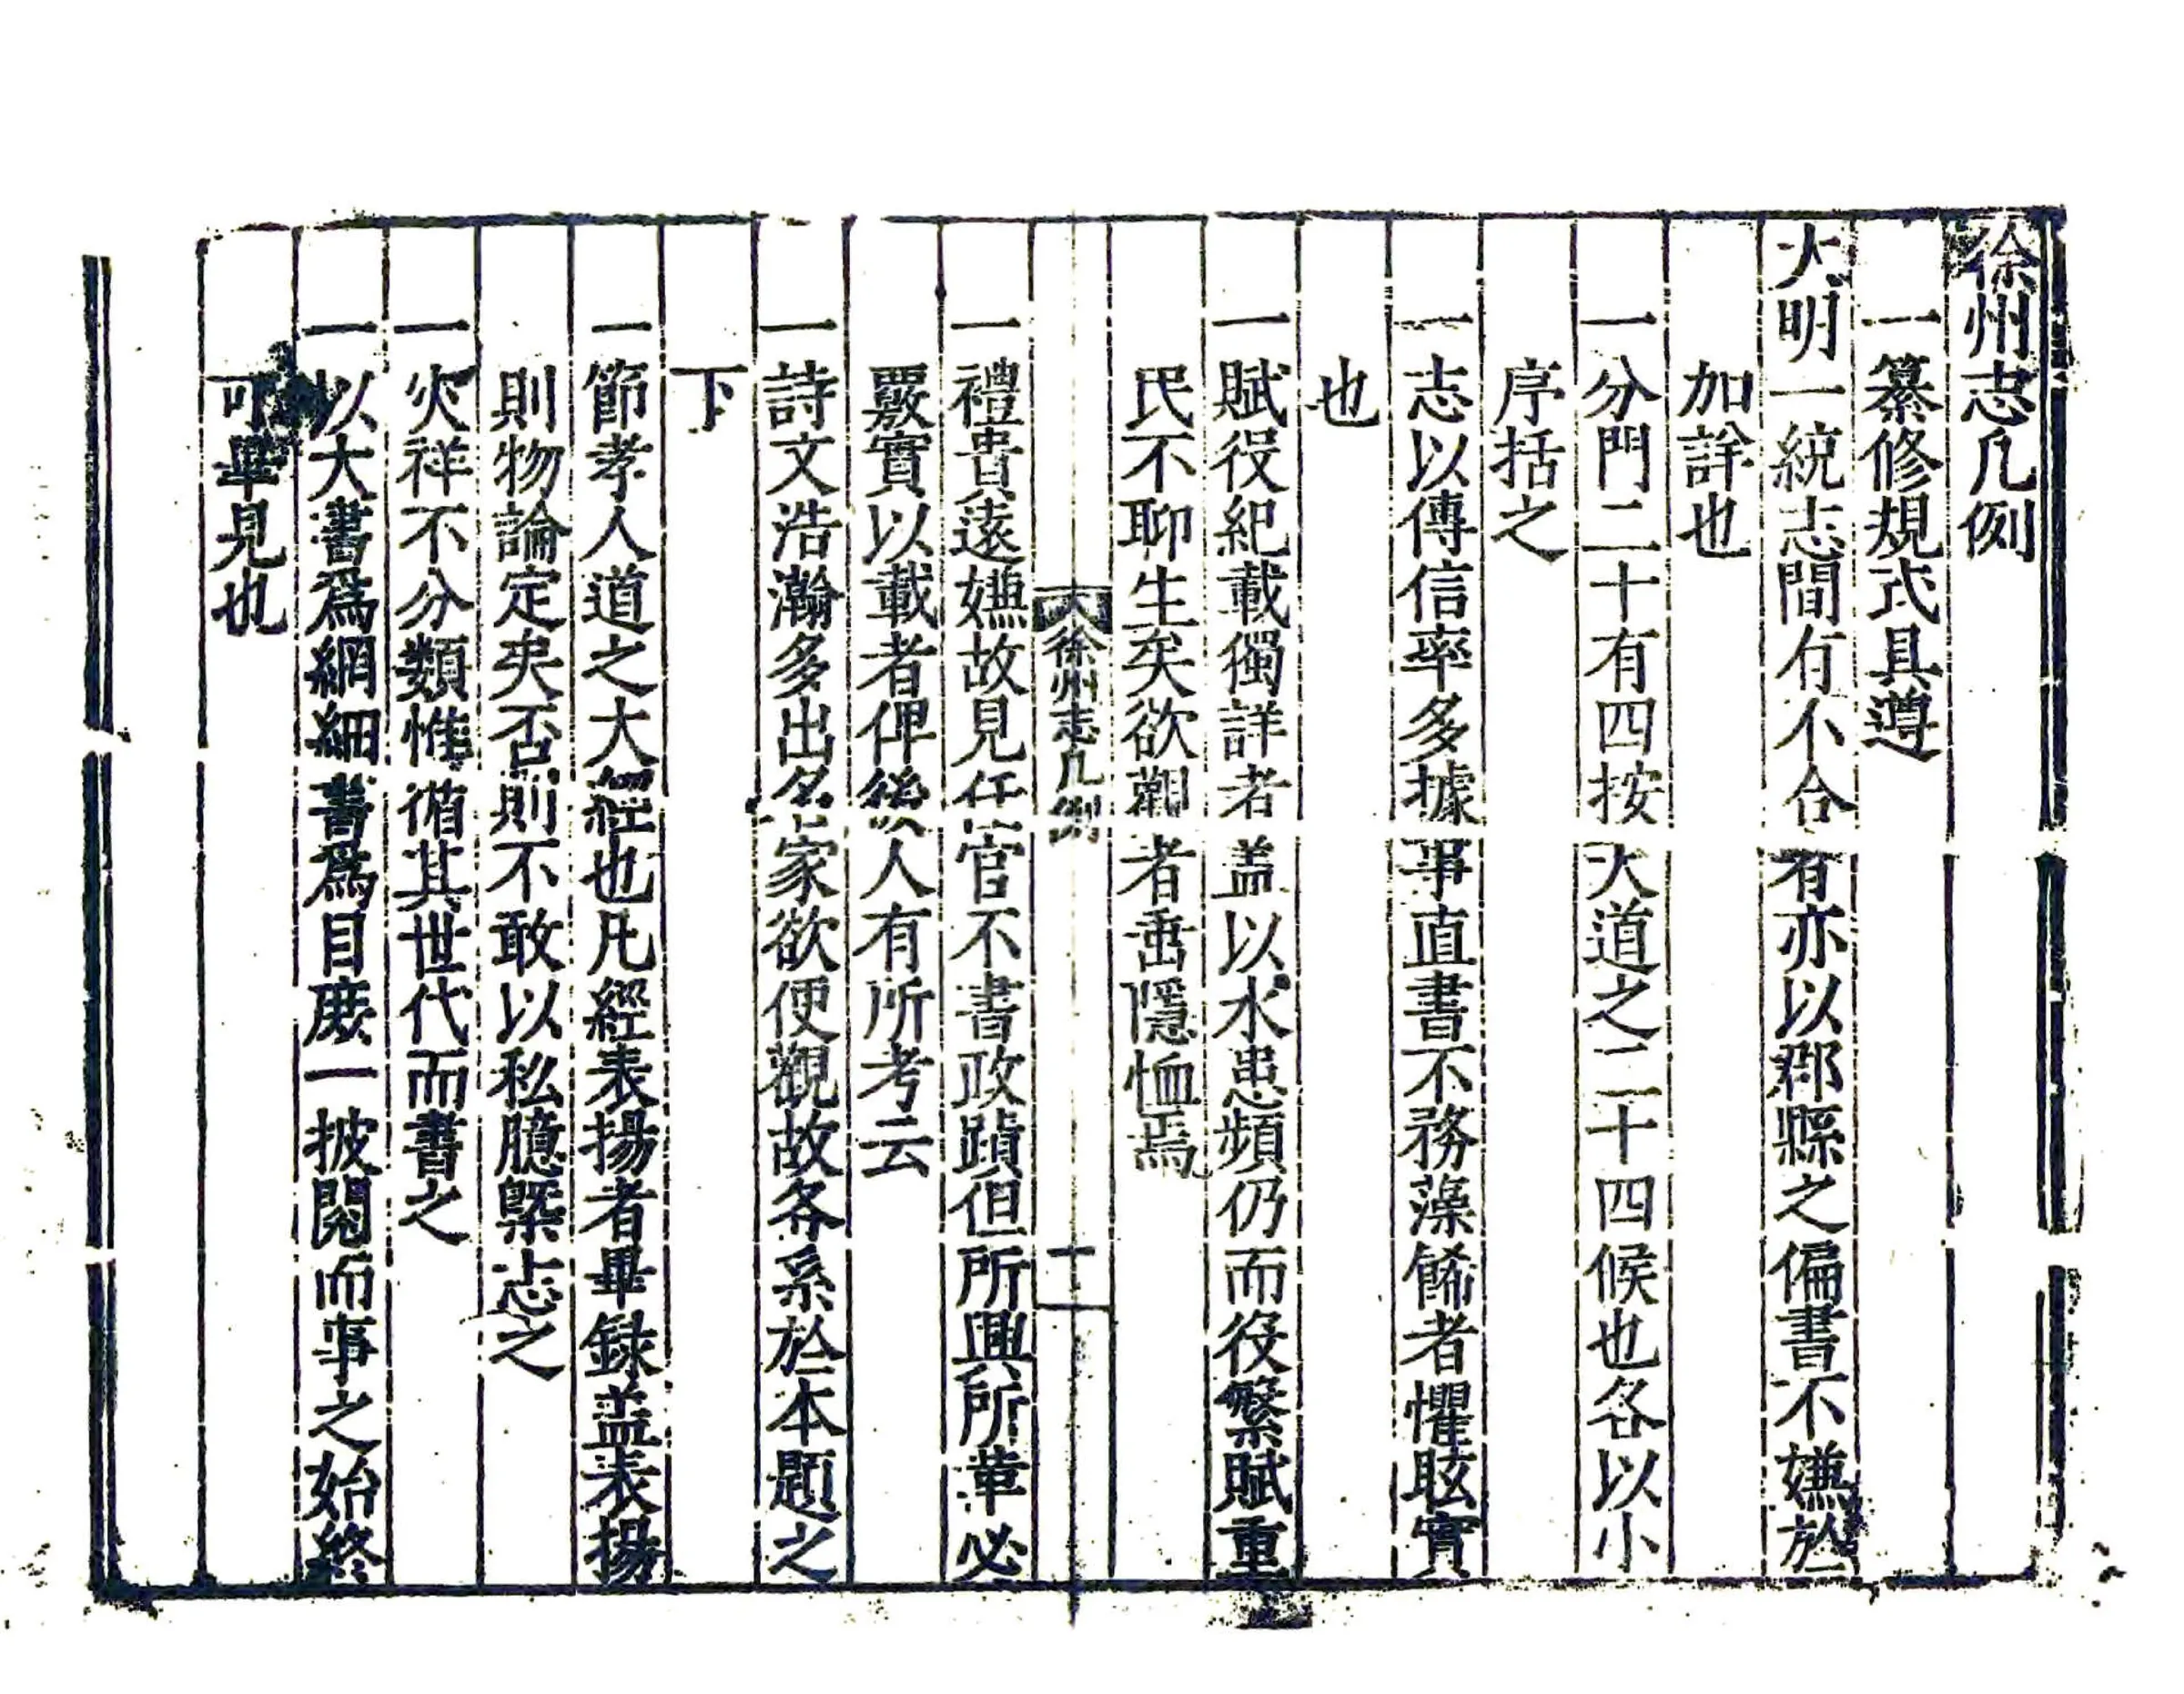 徐州志凡例
一纂修規式具遵
大明一統志間有不合有亦以郡縣之偏書不嫌於
加詳也
一分門二十有四按大道之二十四候也各以小
序括之
一志以傳信率多據事直書不務藻餙者懼眩實
也
一賦役紀載獨詳者盖以水患頻仍而役繁賦重
民不聊生矣欲觀者垂隱恤焉
徐州志凡例
十
一禮貴遠嫌故見任官不書政蹟但所興所革必
覈實以載者俾後人有所考云
一詩文浩瀚多出名家欲便觀故各系於本題之
下
一節孝人道之大經也凡經表揚者畢録盖表揚
則物論定矣否則不敢以私臆槩志之
一灾祥不分類惟循其世代而書之
一以大書爲綱細書爲目庻一披閱而事之始終
可畢見也